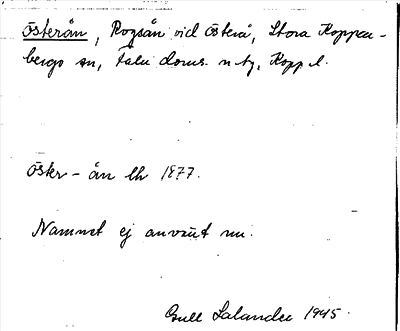 Österån, Rogsån vid Österå, Stora Koppar-
bergs sn, Falu doms. n tg, Kopp l.
Öster-ån lk 1877.
Namnet ej använt nu.
Gull Salander 1945.